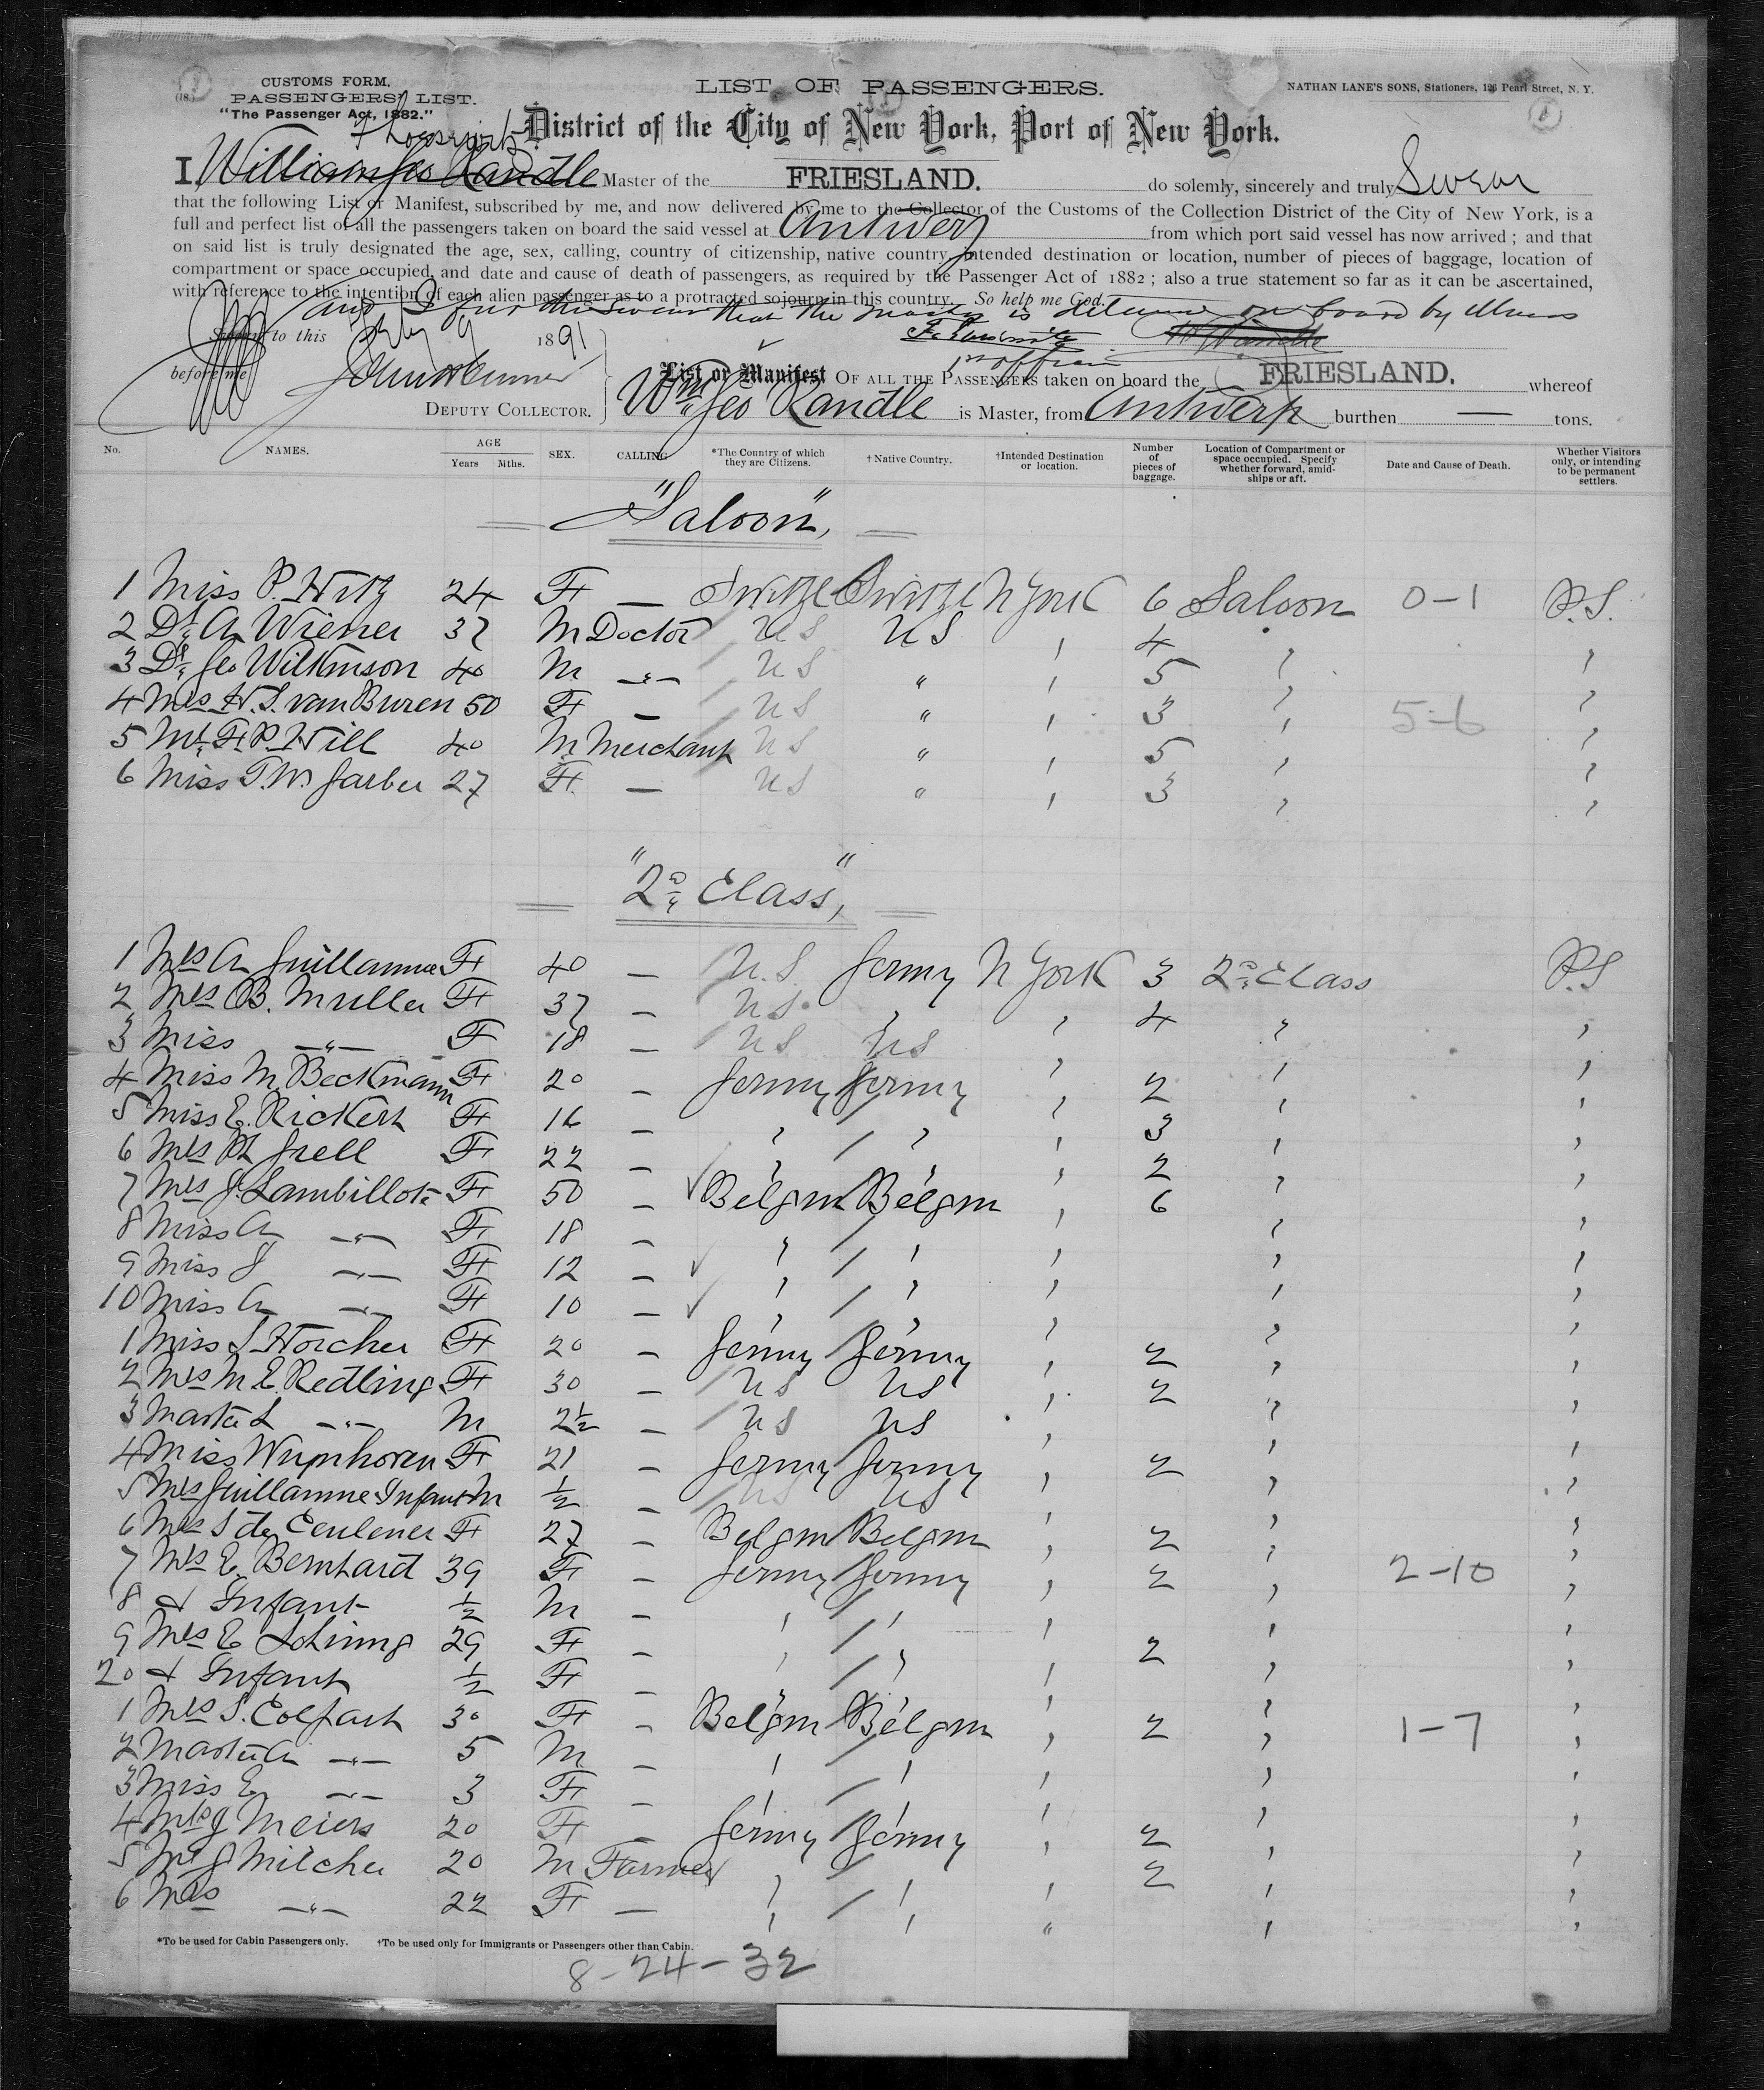 CUSTOMS FORM.
PASSENGERS' LIST.
"The Passenger Act, 1882."
LIST OF PASSENGERS.
NATHAN LANE'S SONS, Stationers, 126 Pearl Street, N. Y.
District of the City of New York, Port of New York.
I, William Geo Randle Master of the FRIESLAND. do solemnly, sincerely and truly Swear
that the following List or Manifest, subscribed by me, and now delivered by me to the Collector of the Customs of the Collection District of the City of New York, is a
full and perfect list of all the passengers taken on board the said vessel at Antwerp from which port said vessel has now arrived; and that
on said list is truly designated the age, sex, calling, country of citizenship, native country, intended destination or location, number of pieces of baggage, location of
compartment or space occupied, and date and cause of death of passengers, as required by the Passenger Act of 1882; also a true statement so far as it can be ascertained,
with reference to the intention of each alien passenger as to a protracted sojourn in this country. So help me God.
and I further swear that the master is detained on board by illness
Sworn to this 9 1891
before me
DEPUTY COLLECTOR.
1st officer
List or Manifest OF ALL THE PASSENGERS taken on board the FRIESLAND. whereof
Wm Geo Randle is Master, from Antwerp burthen — tons.
No. NAMES. AGE Years Mths. SEX. CALLING *The Country of which they are Citizens. †Native Country. †Intended Destination or location. Number of pieces of baggage. Location of Compartment or space occupied. Specify whether forward, amidships or aft. Date and Cause of Death. Whether Visitors only, or intending to be permanent settlers.
"Saloon",
1 Miss P. Hitz 24 F — Switze Switze N York 6 Saloon 0-1 P.S.
2 Dr. A Wiener 37 M Doctor US US , 4 , ,
3 Dr. Geo Wilkinson 40 M -"- US " , 5 , ,
4 Mrs H. S. van Buren 50 F — US " , 3 , 5-6 ,
5 Mr. F. P. Hill 40 M Merchant US " , 5 , ,
6 Miss T. W. Garber 27 F. — US " , 3 , ,
"2d Class",
1 Mrs A Guillaume F 40 — U.S. Germy N York 3 2d Class P.S
2 Mrs B. Muller F 37 — US , , 4 , ,
3 Miss -"- F 18 — US US , , ,
4 Miss M Beckmann F 20 — Germy Germy , 2 , ,
5 Miss E. Rickert F 16 — , , , 3 , ,
6 Mrs Grell F 22 — , , , 2 , ,
7 Mrs J. Lambillote F 50 — Belgm Belgm , 6 , ,
8 Miss A -"- F 18 — , , , , ,
9 Miss J -"- F 12 — , , , , ,
10 Miss A -"- F 10 — , , , , ,
1 Miss L Horcher F 20 — Germy Germy , 2 , ,
2 Mrs M. E. Redling F 30 — US US , 2 , ,
3 Master L -"- M 2½ — US US , , ,
4 Miss Wynhoven F 21 — Germy Germy , 2 , ,
5 Mrs Guillaume Infant M ½ — US US , , ,
6 Mrs S de Ceulener F 27 — Belgm Belgm , 2 , ,
7 Mrs E. Bernhard 39 F — Germy Germy , 2 , 2-10 ,
8 & Infant ½ M — , , , , ,
9 Mrs E 29 F — , , , 2 , ,
20 & Infant ½ F — , , , , ,
1 Mrs S. Colpart 30 F — Belgm Belgm , 2 , 1-7 ,
2 Master A -"- 5 M — , , , , ,
3 Miss E -"- 3 F — , , , , ,
4 Mrs J Meiers 20 F — Germy Germy , 2 , ,
5 Mr J Milcher 20 M Farmer , , , 2 , ,
6 Mrs -"- 22 F — , , " , ,
*To be used for Cabin Passengers only. †To be used only for Immigrants or Passengers other than Cabin.
8-24-32